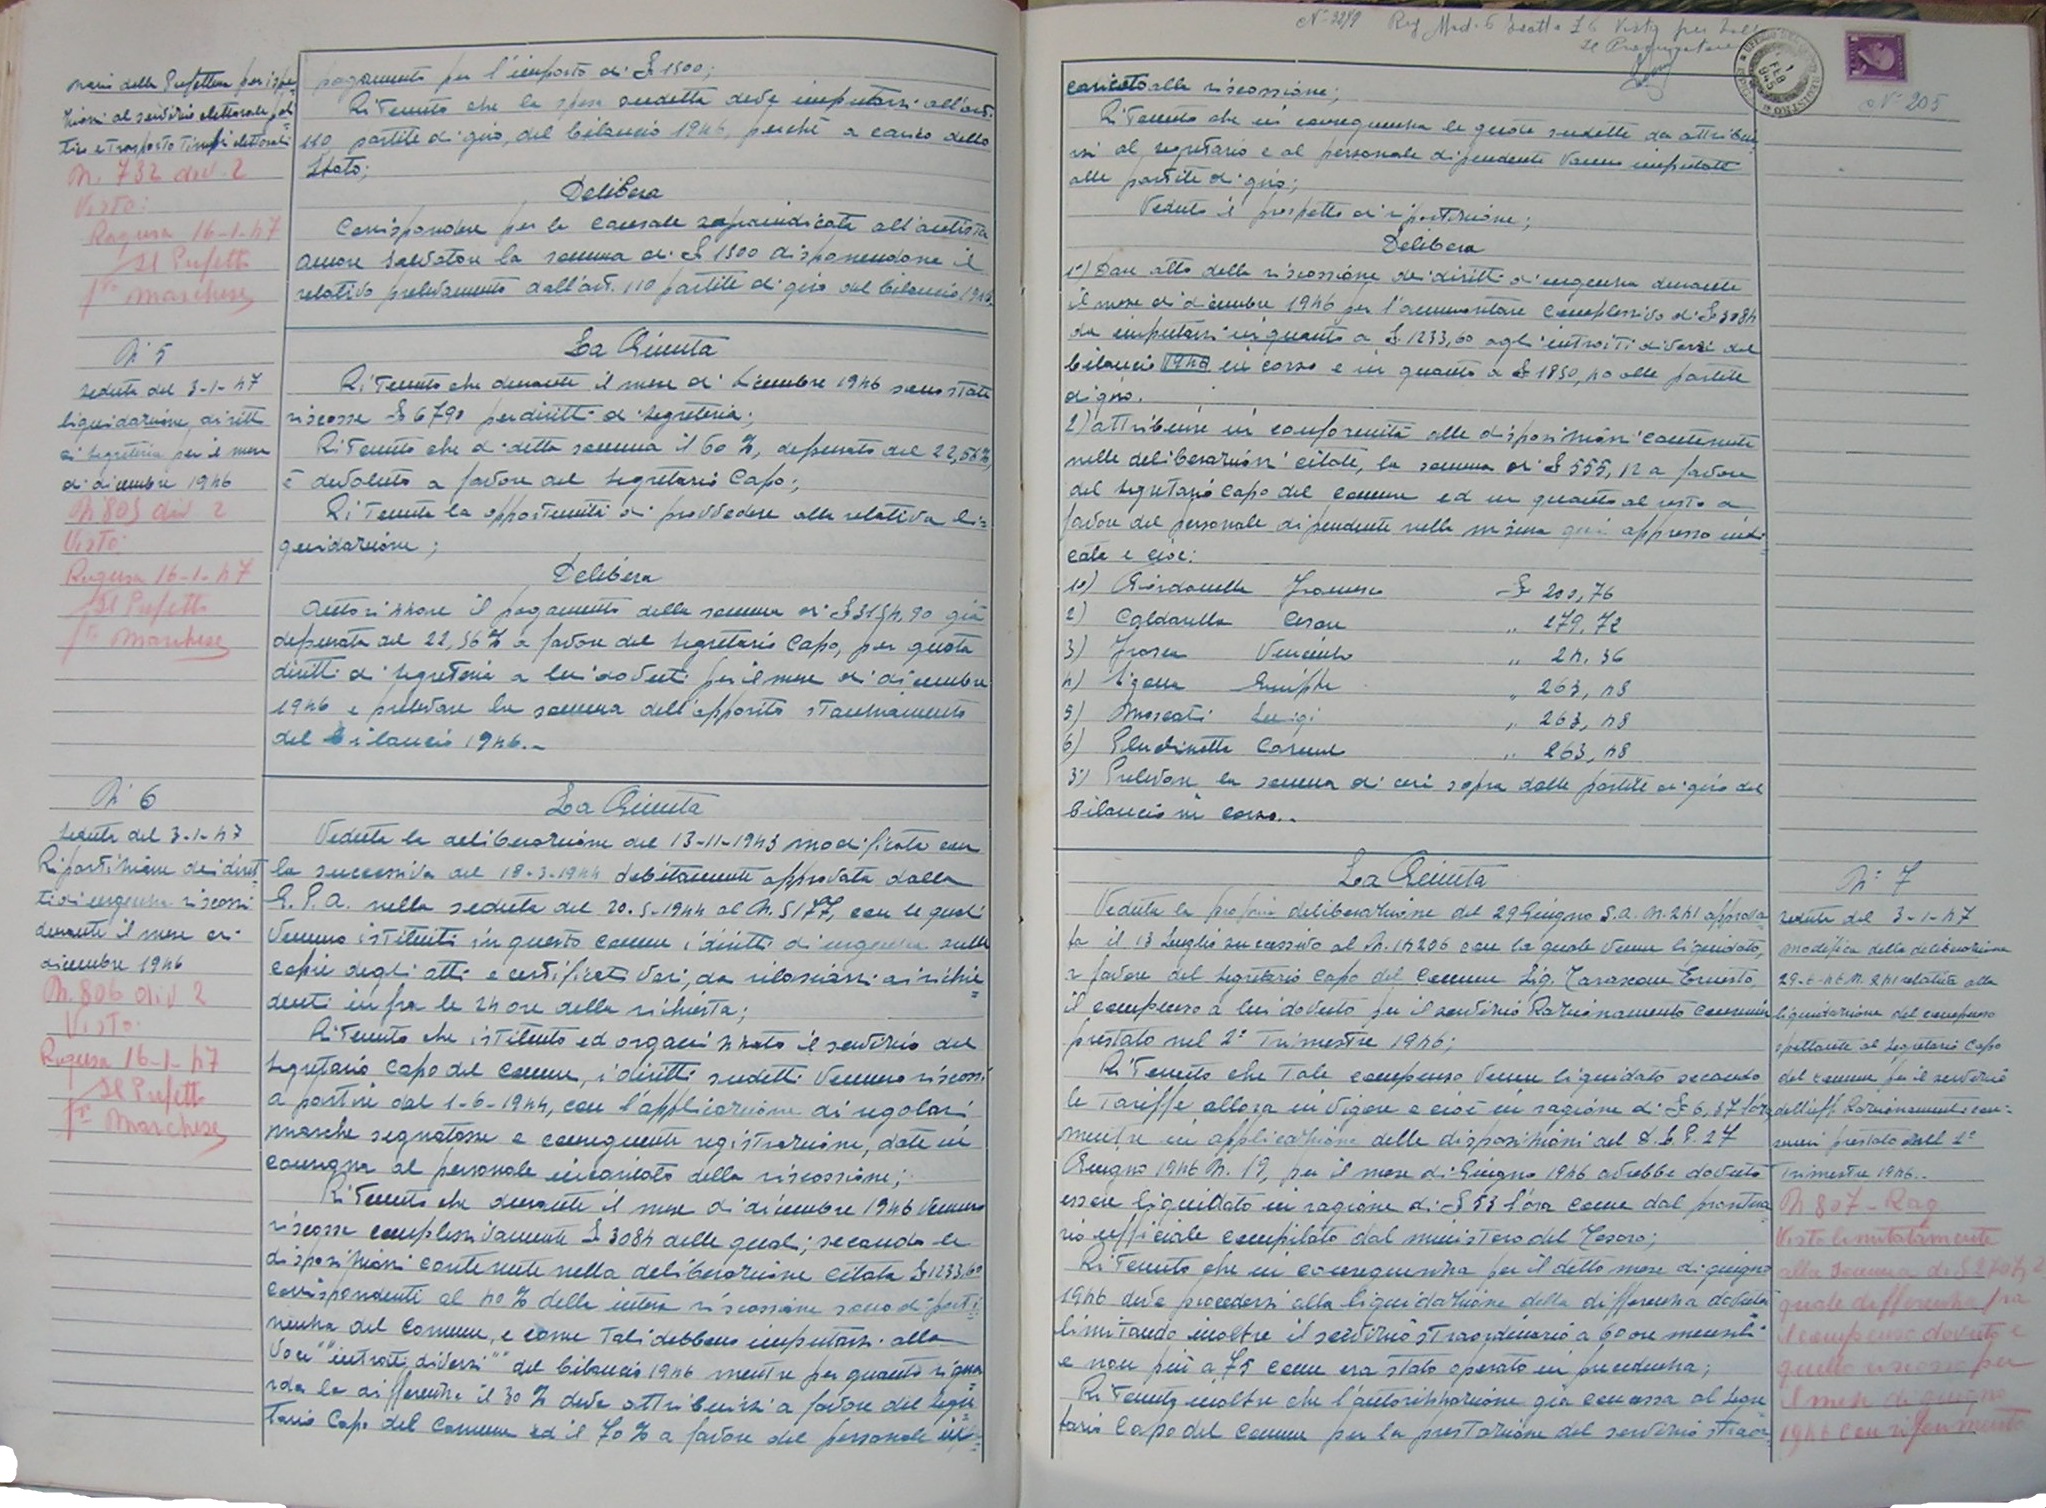 mani della Prefettura per ispe-
zioni al servizio elettorale poli
tico e trasporto timbri elettorali
N. 732 div. 2
Visto:
Ragusa 16-1-47
Il Prefetto
f.to Marchese
pagamento per l'importo di £ 1500;
Ritenuto che la spesa suddetta deve imputarsi all'art.
110 partite di giro, del bilancio 1946, perchè a carico dello
Stato;
Delibera
Corrispondere per la causale sopraindicata all'autista
Amore Salvatore la somma di £ 1500 disponendone il
relativo prelevamento dall'art. 110 partite di giro del bilancio 1946.
N° 5
seduta del 3-1-47
liquidazione diritti
di segreteria per il mese
di dicembre 1946
N 805 div 2
Visto:
Ragusa 16-1-47
Il Prefetto
f.to Marchese
La Giunta
Ritenuto che durante il mese di dicembre 1946 sono state
riscosse £ 6790 per diritti di segreteria;
Ritenuto che di detta somma il 60 %, depurato del 22,56%,
è devoluto a favore del Segretario Capo;
Ritenuta la opportunità di provvedere alla relativa li=
quidazione;
Delibera
Autorizzare il pagamento della somma di £ 3154,90 già
depurata del 22,56% a favore del Segretario Capo, per quota
diritti di segreteria a lui dovuti per il mese di dicembre
1946 e prelevare la somma dall'apposito stanziamento
del bilancio 1946.-
N° 6
seduta del 3-1-47
Ripartizione dei dirit=
ti di urgenza riscossi
durante il mese di
dicembre 1946
N. 806 div 2
Visto:
Ragusa 16-1-47
Il Prefetto
f.to Marchese
La Giunta
Veduta la deliberazione del 13-11-1943 modificata con
la successiva del 18-3-1944 debitamente approvata dalla
G. P. A. nella seduta del 20-5-1944 al N. 5177, con le quali
vennero istituiti in questo comune i diritti di urgenza sulle
copie degli atti e certificati vari, da rilasciarsi ai richie=
denti infra le 24 ore della richiesta;
Ritenuto che istituito ed organizzato il servizio dal
Segretario Capo del Comune, i diritti sudetti vennero riscossi
a partire dal 1-6-1944, con l'applicazione di regolari
marche segnatasse e conseguente registrazione, date in
consegna al personale incaricato della riscossione;
Ritenuto che durante il mese di dicembre 1946 vennero
riscosse complessivamente £ 3084 delle quali, secondo le
disposizioni contenute nella deliberazione citata £ 1233,60
corrispondenti al 40% della intera riscossione sono di perti=
nenza del Comune, e come tali debbono imputarsi alla
voce "introiti diversi" del bilancio 1946 mentre per quanto rigua=
rda la differenza il 30 % deve attribuirsi a favore del Segre=
tario Capo del Comune ed il 70 % a favore del personale in=
N° 2219 Reg. Mod. 5
Il Procuratore
UFFICIO DEL REGISTRO
N° 205
caricato alla riscossione;
Ritenuto che in conseguenza le quote sudette da attribuir
si al segretario e al personale dipendente vanno imputate
alle partite di giro;
Veduto il prospetto di ripartizione;
Delibera
1°) Dare atto della riscossione dei diritti di urgenza durante
il mese di dicembre 1946 per l'ammontare complessivo di £ 3084
da imputarsi in quanto a £ 1233,60 agli introiti diversi del
bilancio 1946 in corso e in quanto a £ 1850,40 alle partite
di giro.
2) attribuire in conformità alle disposizioni contenute
nelle deliberazioni citate, la somma di £ 555,12 a favore
del Segretario Capo del Comune ed in quanto al resto a
favore del personale dipendente nella misura qui appresso indi=
cata e cioè:
1°) Giordanella Francesco £ 200,76
2) Caldarella Cesare " 279,72
3) Frasca Vincenzo " 24,36
4) Ligama Giuseppe " 263,48
5) Moscati Luigi " 263,48
6) Pluchinotta Carmine " 263,48
3°) Prelevare la somma di cui sopra dalle partite di giro del
bilancio in corso.-
La Giunta
Veduta la propria deliberazione del 29 Giugno S.A. N. 241 approva=
ta il 13 Luglio successivo al N. 14206 con la quale venne liquidato,
a favore del Segretario Capo del Comune Sig. Tarascone Ernesto,
il compenso a lui dovuto per il servizio Razionamento consumi
prestato nel 2° trimestre 1946;
Ritenuto che tale compenso venne liquidato secondo
le tariffe allora in vigore e cioè in ragione di £ 6,37 l'ora,
mentre in applicazione delle disposizioni del D.L.P. 27
Giugno 1946 N. 19, per il mese di Giugno 1946 avrebbe dovuto
essere liquidato in ragione di £ 53 l'ora come dal prontua=
rio ufficiale compilato dal ministero del Tesoro;
Ritenuto che in conseguenza per il detto mese di giugno
1946 deve procedersi alla liquidazione della differenza dovuta
limitando inoltre il servizio straordinario a 60 ore mensili
e non più a 75 come era stato operato in precedenza;
Ritenuto inoltre che l'autorizzazione già concessa al Segre
tario Capo del Comune per la prestazione del servizio straor=
N° 7
seduta del 3-1-47
modifica della deliberazione
29-6-46 N. 241 relativa alla
liquidazione del compenso
spettante al Segretario Capo
del comune per il servizio
dell'uff. Razionamento con=
sumi prestato nel 2°
trimestre 1946.-
N 807 - Rag
Visto limitatamente
alla somma di £ 2707,2
quale differenza fra
il compenso dovuto e
quello riscosso per
il mese di giugno
1946 con riferimento